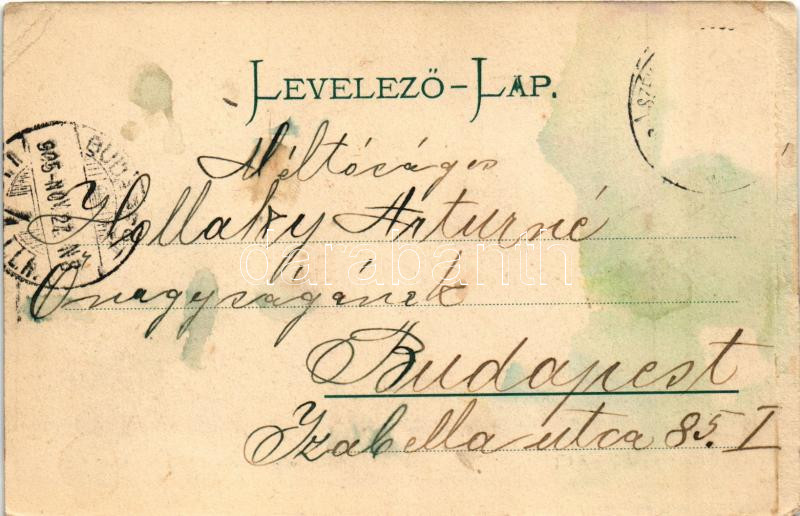 LEVELEZŐ-LAP.
Méltóságos
Hollaky Arturné
Őnagyságának
Budapest
Izabella utca 85. I
BUDAPEST
905-NOV. 24
darabanth